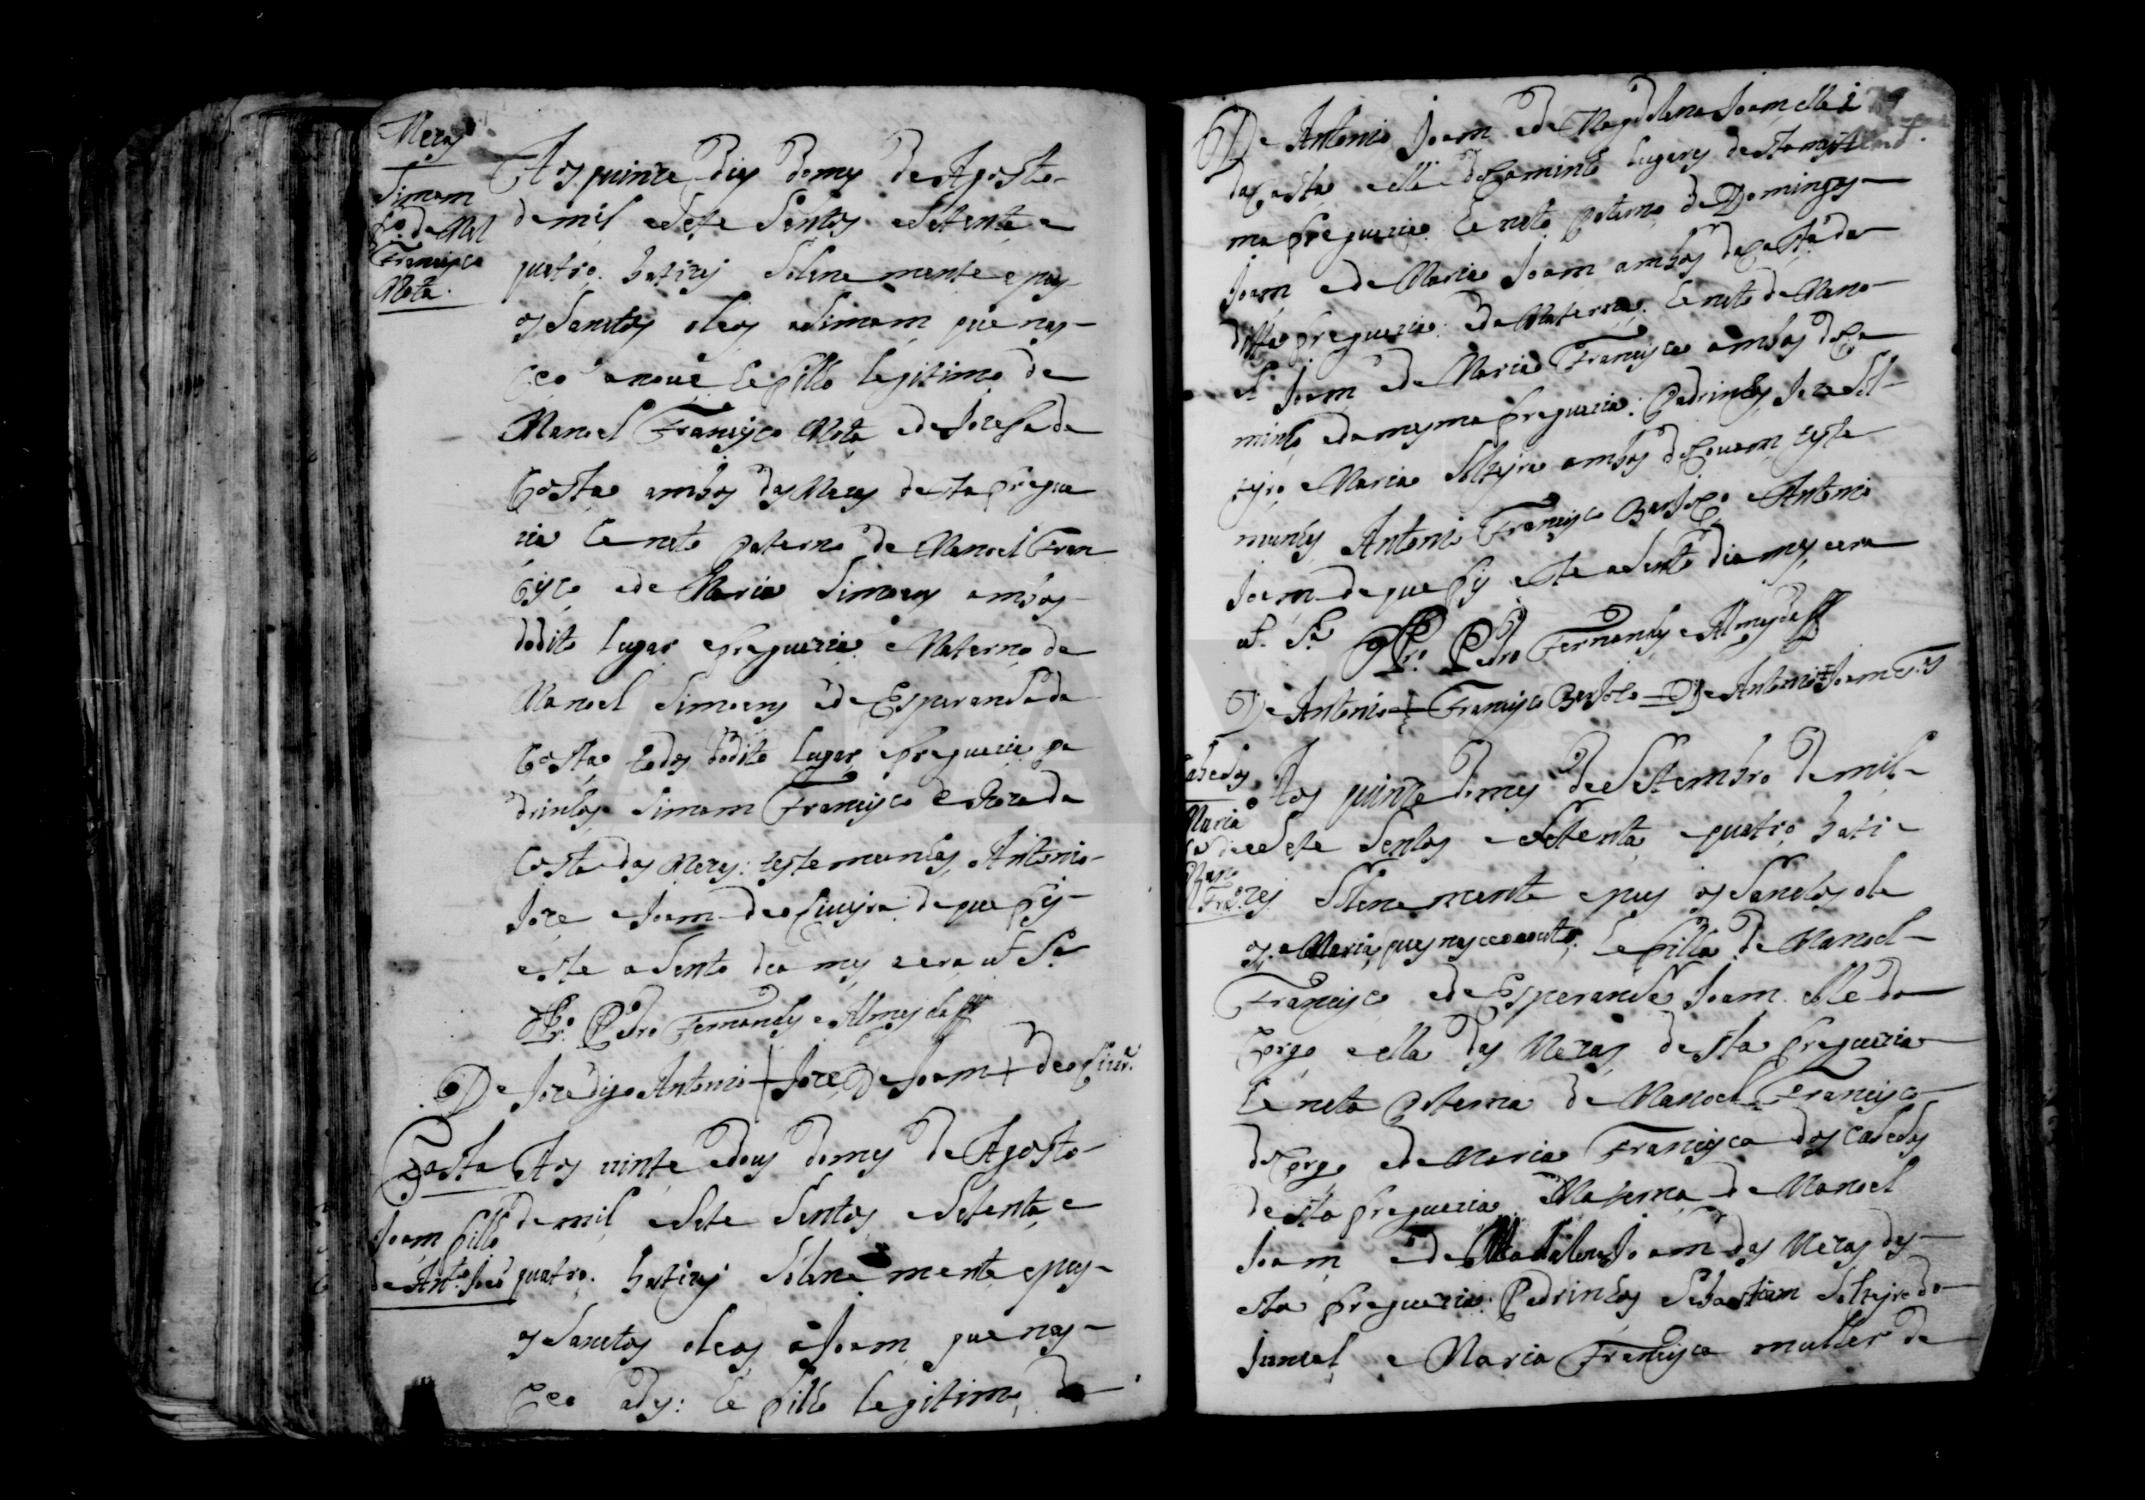 Mezas
Simam
fo. de Mel
Francisco
Mota.
Aos quinze dias do mes de Agosto
de mil e Sete Sentos e Setenta e
quatro. batizei Solene mente e pus
os Sanctos oleos a Simam que nas-
ceo a nove he fillo legitimo de
Manoel Francisco Mota e de Jozefa da
Costa ambos das Mezas desta fregue
zia he neto paterno de Manoel Fran
cisco e de Maria Simoens ambos
do dito lugar e freguezia e Materno de
Manoel Simoens e de Esperansa da
Costa todos do dito lugar e freguezia pa
drinhos Simam Francisco e Roza da
Costa das Mezas: testemunhas Antonio
Joze e Joam de oliveira de que fis
este aSento dia mes e era ut Sa
O Pro. Pedro Fernandes e Almeyda
De Joze digo Antonio + Joze De Joam + de olivra.
Costa
Joam fillo
de Anto. Joam
Aos vinte e dous do mes de Agosto
de mil e Sete Sentos e Setenta e
quatro. batizei Solene mente e pus
os Sanctos oleos a Joam que nas-
ceo a des: he fillo legitimo de
De Antonio Joam e de Magdalena Joam elle
da Costa e ella do Caminho lugares desta mes
ma freguezia he neto paterno de Domingos
Joam e de Maria Joam ambos da Costa da
ditta freguezia: e da Materna he neto de Mano
el Joam e de Maria Francisca ambos do Ca
minho e da mesma freguezia: Padrinhos Joze Sol-
teyro e Maria Solteyra ambos do Covam teste
munhas Antonio Francisco Bartolo e Antonio
Joam de que fis este aSento dia mes e era
ut Sa O Pro. Pedro Fernandes e Almeyda
De Antonio + Francisco Bartolo De Antonio + Joam
Cabedos
Maria
fa. de
Mano
Fra.
Aos quinze do mes de Setembro de mil
e Sete Sentos e Setenta e quatro bati
zei Solene mente e pus os Sanctos ole
os a Maria que nasceo a outo, he filla de Manoel
Francisco e de Esperansa Joam elle do
Corgo e ella das Mezas desta freguezia
he neta paterna de Manoel Francisco
do Corgo e de Maria Francisca dos Cabedos
desta freguezia Materna de Manoel
Joam e de Madalena Joam das Mezas des-
sta freguezia: Padrinhos Sebastiam Solteyro do
Juncal e Maria Francisca muller de